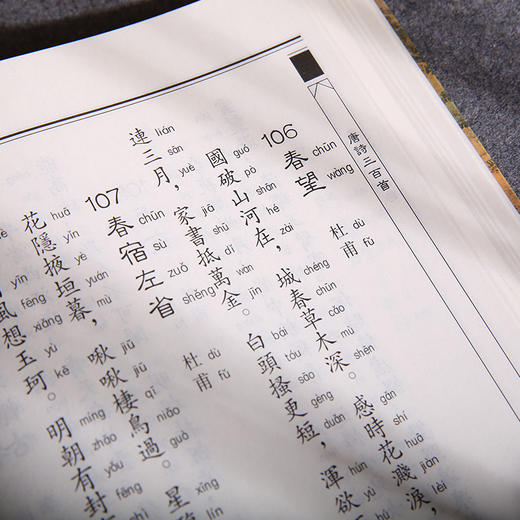 唐詩三百首
106 春望 杜甫
chūn wàng dù fǔ
國破山河在，城春草木深。感時花濺淚，
guó pò shān hé zài chéng chūn cǎo mù shēn gǎn shí huā jiàn lèi
連三月，家書抵萬金。白頭搔更短，渾欲
lián sān yuè jiā shū dǐ wàn jīn bái tóu sāo gèng duǎn hún yù
107 春宿左省 杜甫
chūn sù zuǒ shěng dù fǔ
花隱掖垣暮，啾啾棲鳥過。星
huā yǐn yè yuán mù jiū jiū qī niǎo guò xīng
風想玉珂。明朝有封
fēng xiǎng yù kē míng zhāo yǒu fēng